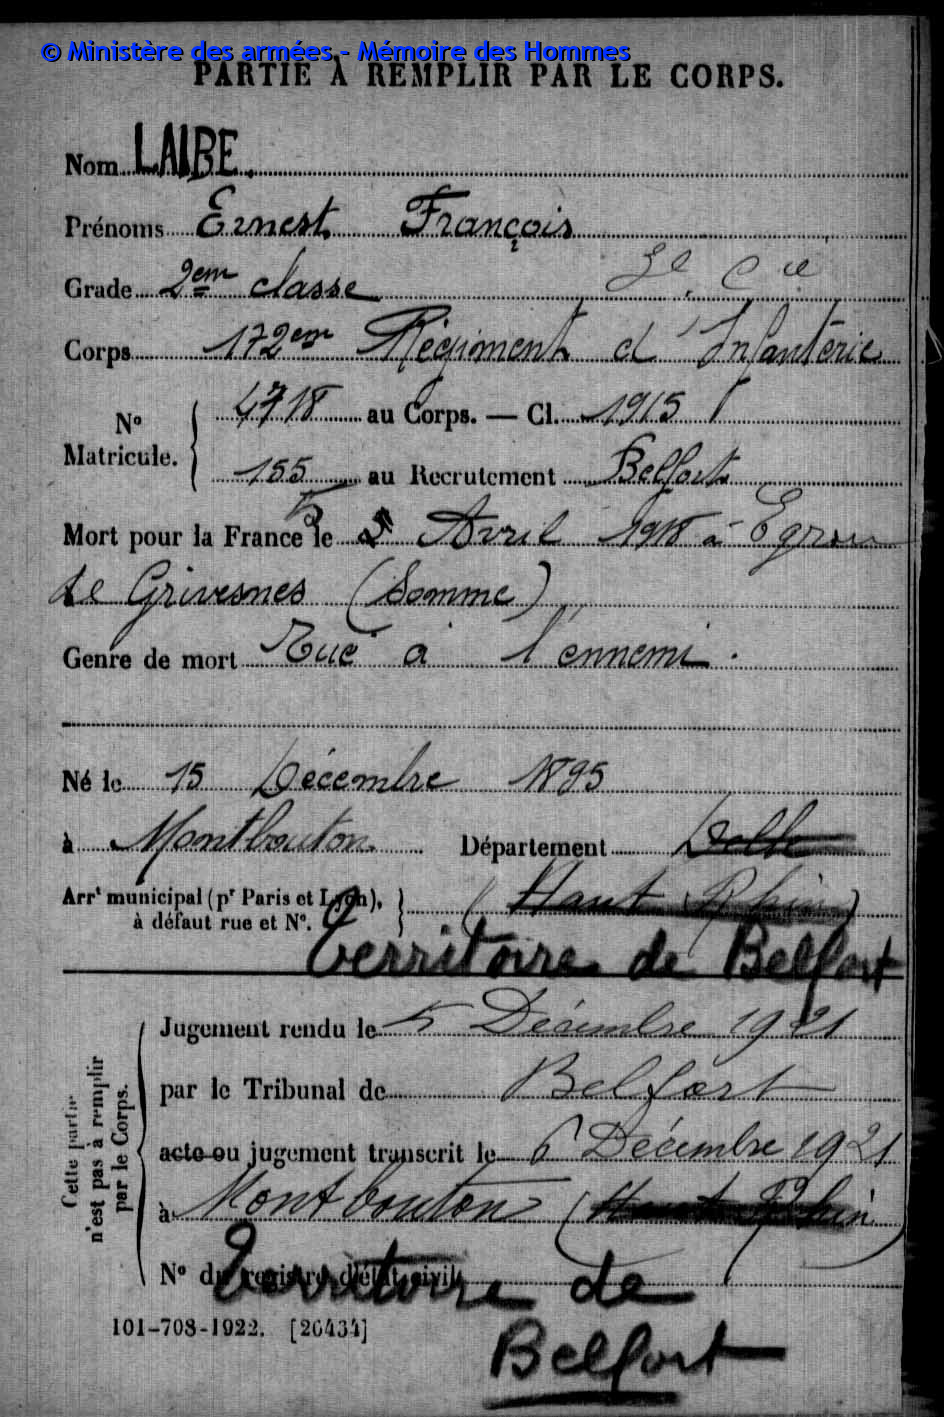 © Ministère des armées - Mémoire des Hommes
PARTIE À REMPLIR PAR LE CORPS.
Nom LAIBE.
Prénoms Ernest François
Grade 2em classe Cie
Corps 172em Régiment d'Infanterie
N° Matricule. 4718 au Corps. — Cl. 1915
155 au Recrutement Belfort
Mort pour la France le 5 Avril 1918 à
de Grivesnes (Somme)
Genre de mort Tué à l'ennemi.
Né le 15 Décembre 1895
à Montbouton Département Delle
Arrt municipal (pr Paris et Lyon), à défaut rue et N°. (Haut Rhin)
Territoire de Belfort
Cette partie n'est pas à remplir par le Corps.
Jugement rendu le 5 Décembre 1921
par le Tribunal de Belfort
acte ou jugement transcrit le 6 Décembre 1921
à Montbouton (Haut Rhin)
N° du registre d'état civil
Territoire de
Belfort
101-708-1922. [26434]